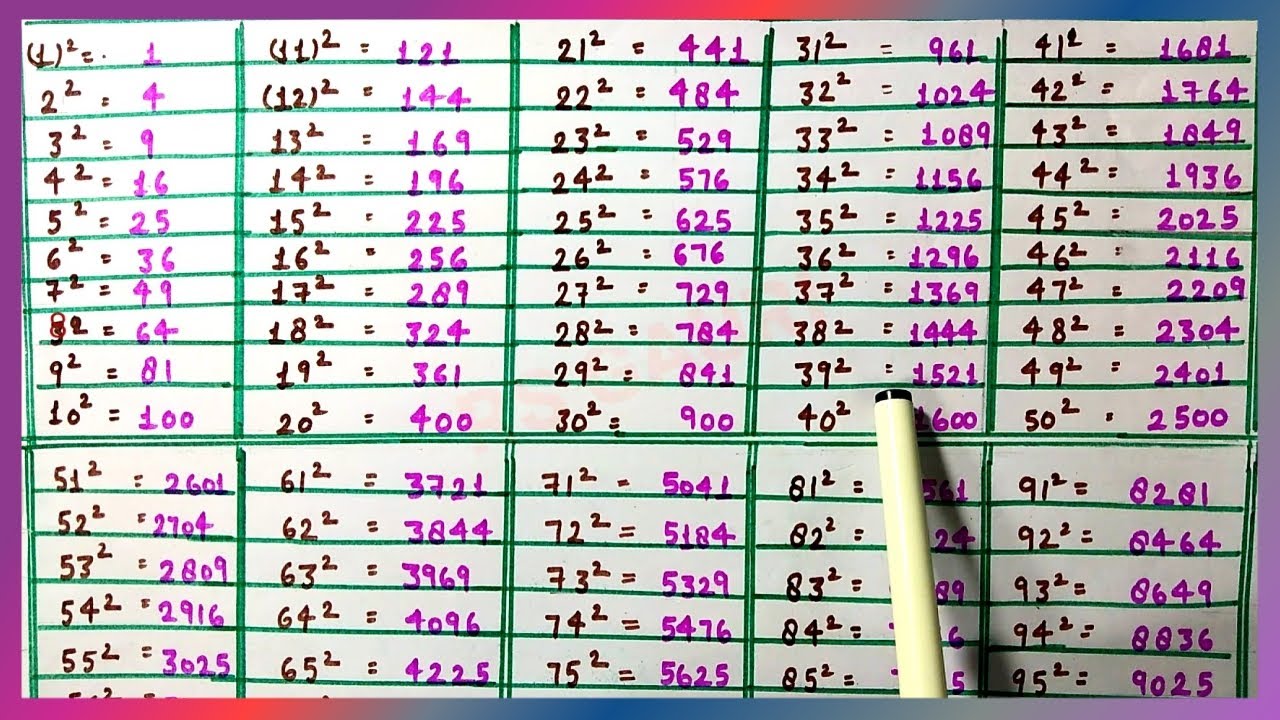 (1)² = 1
2² = 4
3² = 9
4² = 16
5² = 25
6² = 36
7² = 49
8² = 64
9² = 81
10² = 100
(11)² = 121
(12)² = 144
13² = 169
14² = 196
15² = 225
16² = 256
17² = 289
18² = 324
19² = 361
20² = 400
21² = 441
22² = 484
23² = 529
24² = 576
25² = 625
26² = 676
27² = 729
28² = 784
29² = 841
30² = 900
31² = 961
32² = 1024
33² = 1089
34² = 1156
35² = 1225
36² = 1296
37² = 1369
38² = 1444
39² = 1521
40² 1600
41² = 1681
42² = 1764
43² = 1849
44² = 1936
45² = 2025
46² = 2116
47² = 2209
48² = 2304
49² = 2401
50² = 2500
51² = 2601
52² = 2704
53² = 2809
54² = 2916
55² = 3025
61² = 3721
62² = 3844
63² = 3969
64² = 4096
65² = 4225
71² = 5041
72² = 5184
73² = 5329
74² = 5476
75² = 5625
81² = 561
82² = 24
83² = 89
84² = 6
85² = 5
91² = 8281
92² = 8464
93² = 8649
94² = 8836
95² = 9025